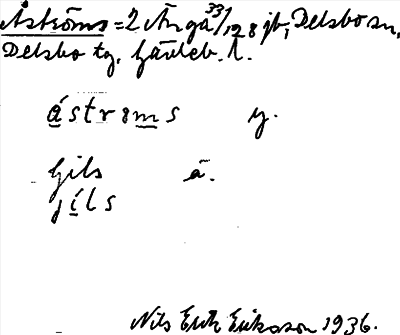 Åströms = 2 Änga 33/128 jb, Delsbo sn,
Delsbo tg. Gävleb. l.
åstrəms y.
Gils ä.
jíls
Nils Erik Eriksson 1936.